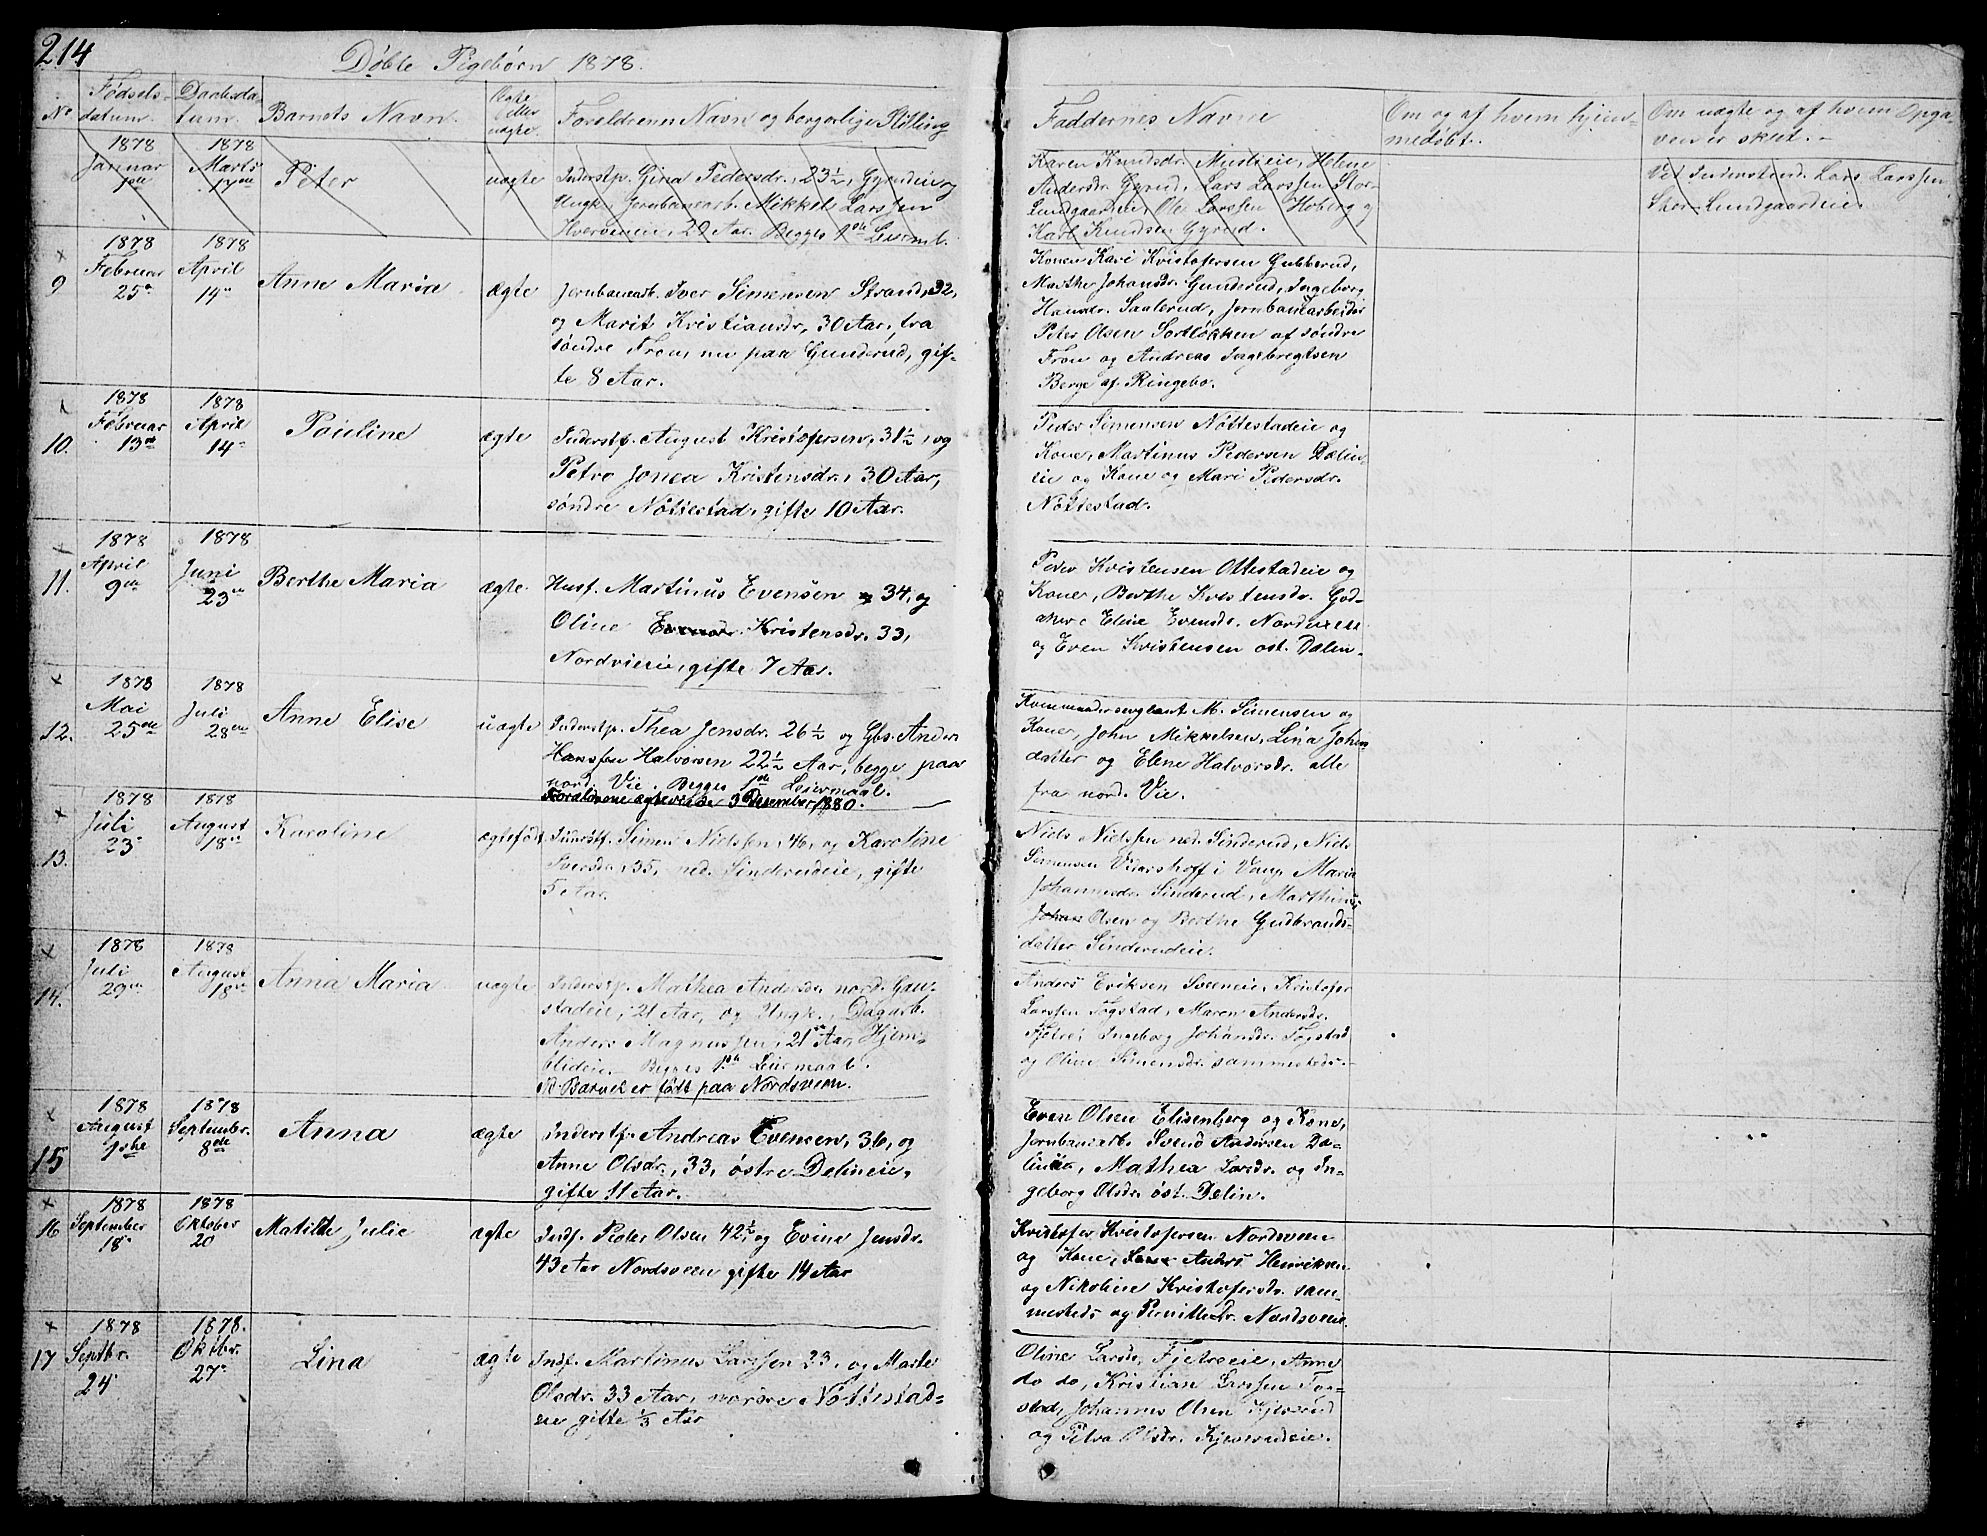 214
Døbte Pigebørn 1878.
No
Fødsels-
datum.
Daabsda-
tum.
Barnets Navn.
Ægte
eller
uægte.
Forældrenes Navn og borgerlige Stilling
Faddernes Navne
Om og af hvem hjem-
medøbt.
Om uægte og af hvem Opga-
ven er skeet. -
1878
Januar
1ste
1878
Marts
17de
Peter
uægte
Inderstp. Gina Pedersdr., 23½, Gyrudeie og
Ungk. Jernbanearb. Mikkel Larssen
Hverveneie, 29 Aar. Begges 1ste Leierml.
Karen Knudsdr. Mustieie, Helene
Andersdr. Gyrud, Lars Larssen Stor-
Lundgaardeie, Ole Larssen Hoberg og
Karl Knudsen Gyrud.
Ved Indersteind. Lars Larssen
Stor-Lundgaardeie.
x
9
1878
Februar
25de
1878
April
14de
Anne Maria
ægte
Jernbanearb. Iver Simensen Strand, 32,
og Marit Kristiansdr, 30 Aar, fra
søndre Fron, nu paa Gunderud, gif-
te 8 Aar.
Konen Kari Kristofersen Gubberud,
Marthe Johansdr. Gunderud, Ingeborg
Hansdr. Saalerud, Jernbanearbeider
Peter Olsen Sortløkken af søndre
Fron og Andreas Ingebregtsen
Berge af Ringebo.
x
10.
1878
Februar
13de
1878
April
14de
Pauline
ægte
Inderstf. August Kristofersen, 31½, og
Petra Jonea Kristensdr., 30 Aar,
søndre Nøttestad, gifte 10 Aar.
Peder Simensen Nøttestadeie og
Kone, Martinus Pedersen Dælin-
eie og Kone og Mari Pedersdr.
Nøttestad.
x
11.
1878
April
9de
1878
Juni
23de
Berthe Maria
ægte.
Husf. Martinus Evensen 34, og
Oline Evensdr. Kristensdr. 33,
Nordvieeie, gifte 7 Aar.
Peder Kristensen Ottestadeie og
Kone, Berthe Kristensdr. God-
aker, Eline Evensdr. Nordvieeie
og Even Kristensen øst. Dælin.
x
12.
1878
Mai
25de
1878
Juli
28de
Anne Elise
uægte
Inderstp. Thea Jensdr. 26½ og Gbs. Anders
Hanssen Halvorsen 22½ Aar, begge paa
nord. Vie. Begges 1ste Leiermaal.
Forældrene ægteviede 3 Desember 1880.
Kommandersergeant M. Simensen og
Kone, John Mikkelsen, Lina Johns
datter og Elene Halvorsdr. alle
fra nord. Vie.
x
13.
1878
Juli
23de
1878
August
18de
Karoline
ægtefødt
Inderstf. Simen Nielssen, 46, og Karoline
Iversdr. 35, ned. Sinderudeie, gifte
5 Aar.
Niels Nielssen ned. Sinderud, Niels
Simensen Vidarshoff i Vang, Maria
Johannesdr. Sinderud, Marthinus
Johns Olsen og Berthe Gudbrands-
datter Sinderudeie.
x
14.
1878
Juli
29de
1878
August
18de
Anna Maria
uægte
Inderstp. Mathea Andersdr. nord. Gau-
stadeie, 21 Aar, og Ungk., Dagarb.
Anders Magnussen, 21 Aar, Hjem-
slideie. Begges 1ste Leiermaal.
Nb. Barnet er født paa Nordsveen.
Anders Eriksen Sveeneie, Kristofer
Larssen Togstad, Maren Andersdr.
Fjetre, Ingeborg Johansdr. Togstad
og Oline Simensdr. sammesteds.
x
15
1878
August
1ste
1878
Septembr.
8de
Anna
ægte
Inderstf. Andreas Evensen, 36, og
Anne Olsdr., 33, østre Delineie,
gifte 11 Aar.
Even Olsen Elisenberg og Kone,
Jernbanearb. Svend Andersen Dæ-
lineie, Mathea Larsdr. og In-
geborg Olsdr. øst. Delin.
x
16
1878
September
18de
1878
Oktober
20
Matilde Julie
ægte
Indf. Peter Olsen 42½ og Evine Jensdr.
43 Aar Nordsveen gifte 14 Aar
Kristofer Kristofersen Nordsveen
og Kone, Anders Henriksen
og Nikoline Kristofersdr. sam-
mesteds og Pernille Nordsveen.
x
17
1878
Septbr.
24
1878.
Oktbr.
27de
Lina
ægte
Indf. Martinus Larssen 33, og Marte
Olsdr. 33 Aar, nordre Nøttestad-
eie gifte ⅓ Aar
Oline Larsdr, Fjetreeie, Anne
do do, Kristian Larssen Tog-
stad, Johannes Olsen Kjeverud
og Petra Olsdr. Kjeverudeie.